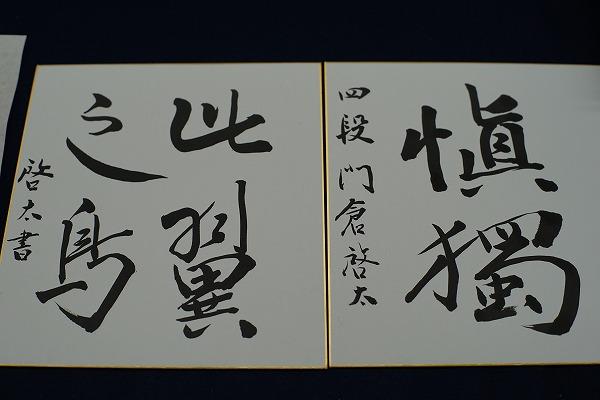 慎獨
四段 門倉啓太
比翼
之鳥
啓太書